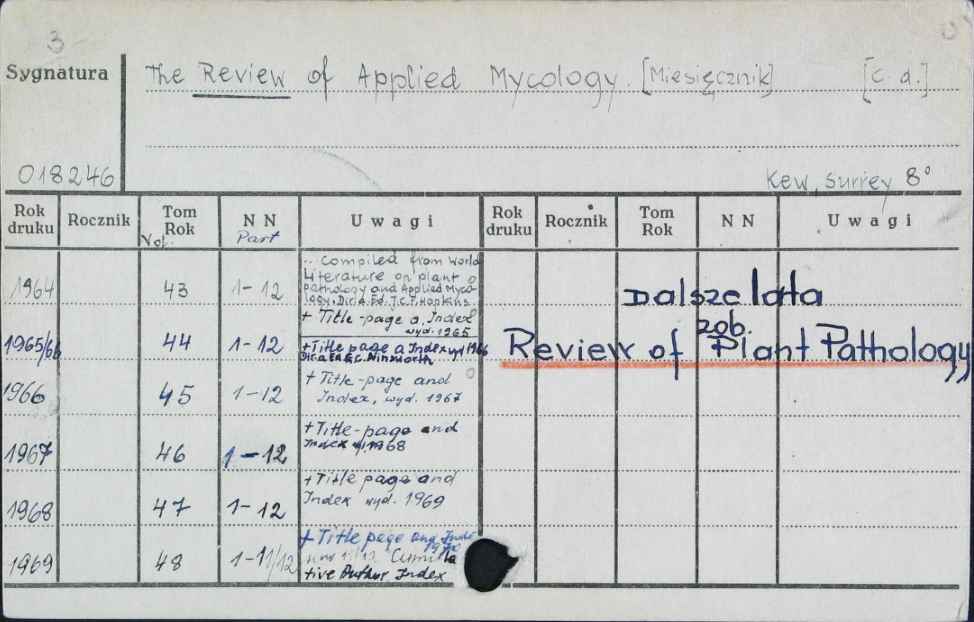 3
Sygnatura
The Review of Applied Mycology. [Miesięcznik] [c. d.]
018246
Kew, Surrey 8°
Rok druku Rocznik Tom Rok N N U w a g i Rok druku Rocznik Tom Rok N N U w a g i
Vol. Part
1964 43 1-12 .. Compiled from World
Literature on plant
pathology and Applied Myco-
logy. Dir. a. Ed. J.C.F. Hopkins
+ Title-page a. Index
wyd. 1965
1965/66 44 1-12 + Title page a Index wyd 1966
1966 45 1-12 + Title-page and
Index, wyd. 1967
1967 46 1-12 + Title-page and
Index 1968
1968 47 1-12 + Title page and
Index wyd. 1969
1969 48 1-11/12 + Title page and Index
1970
Cumula
tive Author Index
Dalsze lata
zob.
Review of Plant Pathology